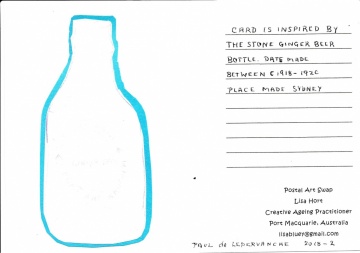 CARD IS INSPIRED BY
THE STONE GINGER BEER
BOTTLE. DATE MADE
BETWEEN C 1918-1920
PLACE MADE SYDNEY
Postal Art Swap
Lisa Hort
Creative Ageing Practitioner
Port Macquarie, Australia
lisabluey@gmail.com
PAUL de LEDERVANCHE 2018-2